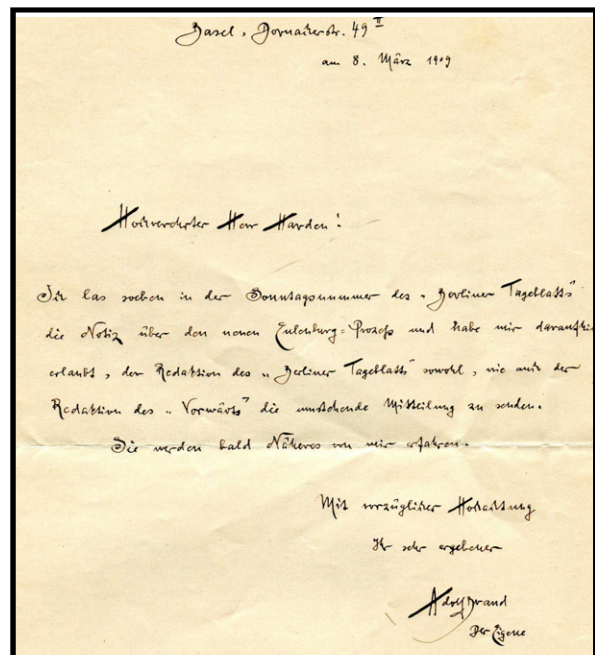 Basel, Dornacherstr. 49 II
am 8. März 1909
Hochverehrter Herr Harden!
Ich las soeben in der Sonntagsnummer des „Berliner Tageblatts"
die Notiz über den neuen Eulenburg=Prozeß und habe mir daraufhin
erlaubt, der Redaktion des „Berliner Tageblatts" sowohl, wie auch der
Redaktion des „Vorwärts" die umstehende Mitteilung zu senden.
Sie werden bald Näheres von mir erfahren.
Mit vorzüglicher Hochachtung
Ihr sehr ergebener
Adolf Brand
Der Eigene